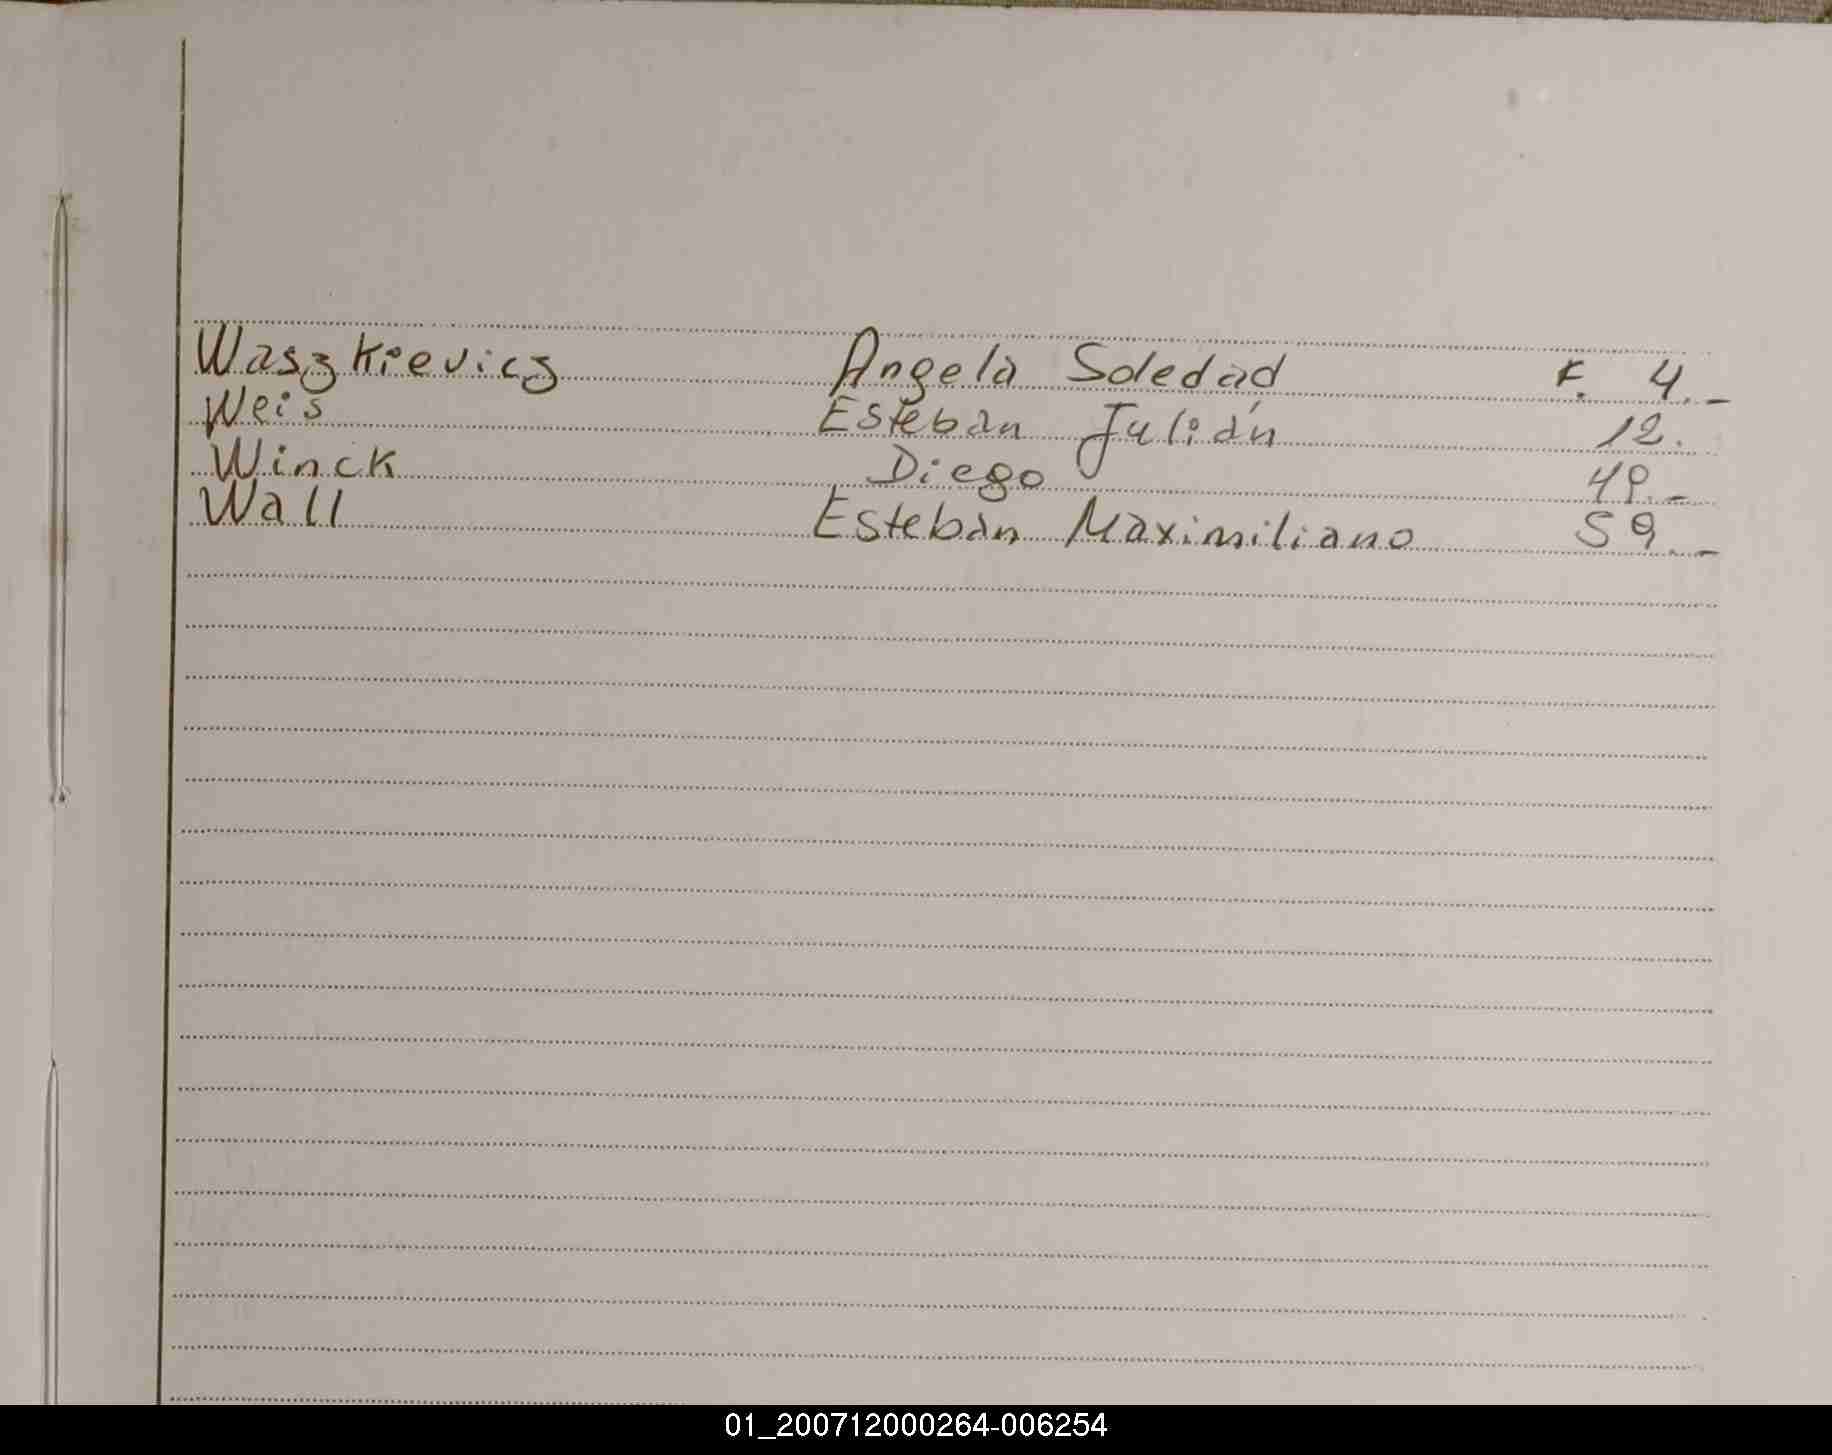 Waszkievicz Angela Soledad F. 4.-
Weis Esteban Julián 12.
Winck Diego 49.-
Wall Esteban Maximiliano 59.-
01_200712000264-006254